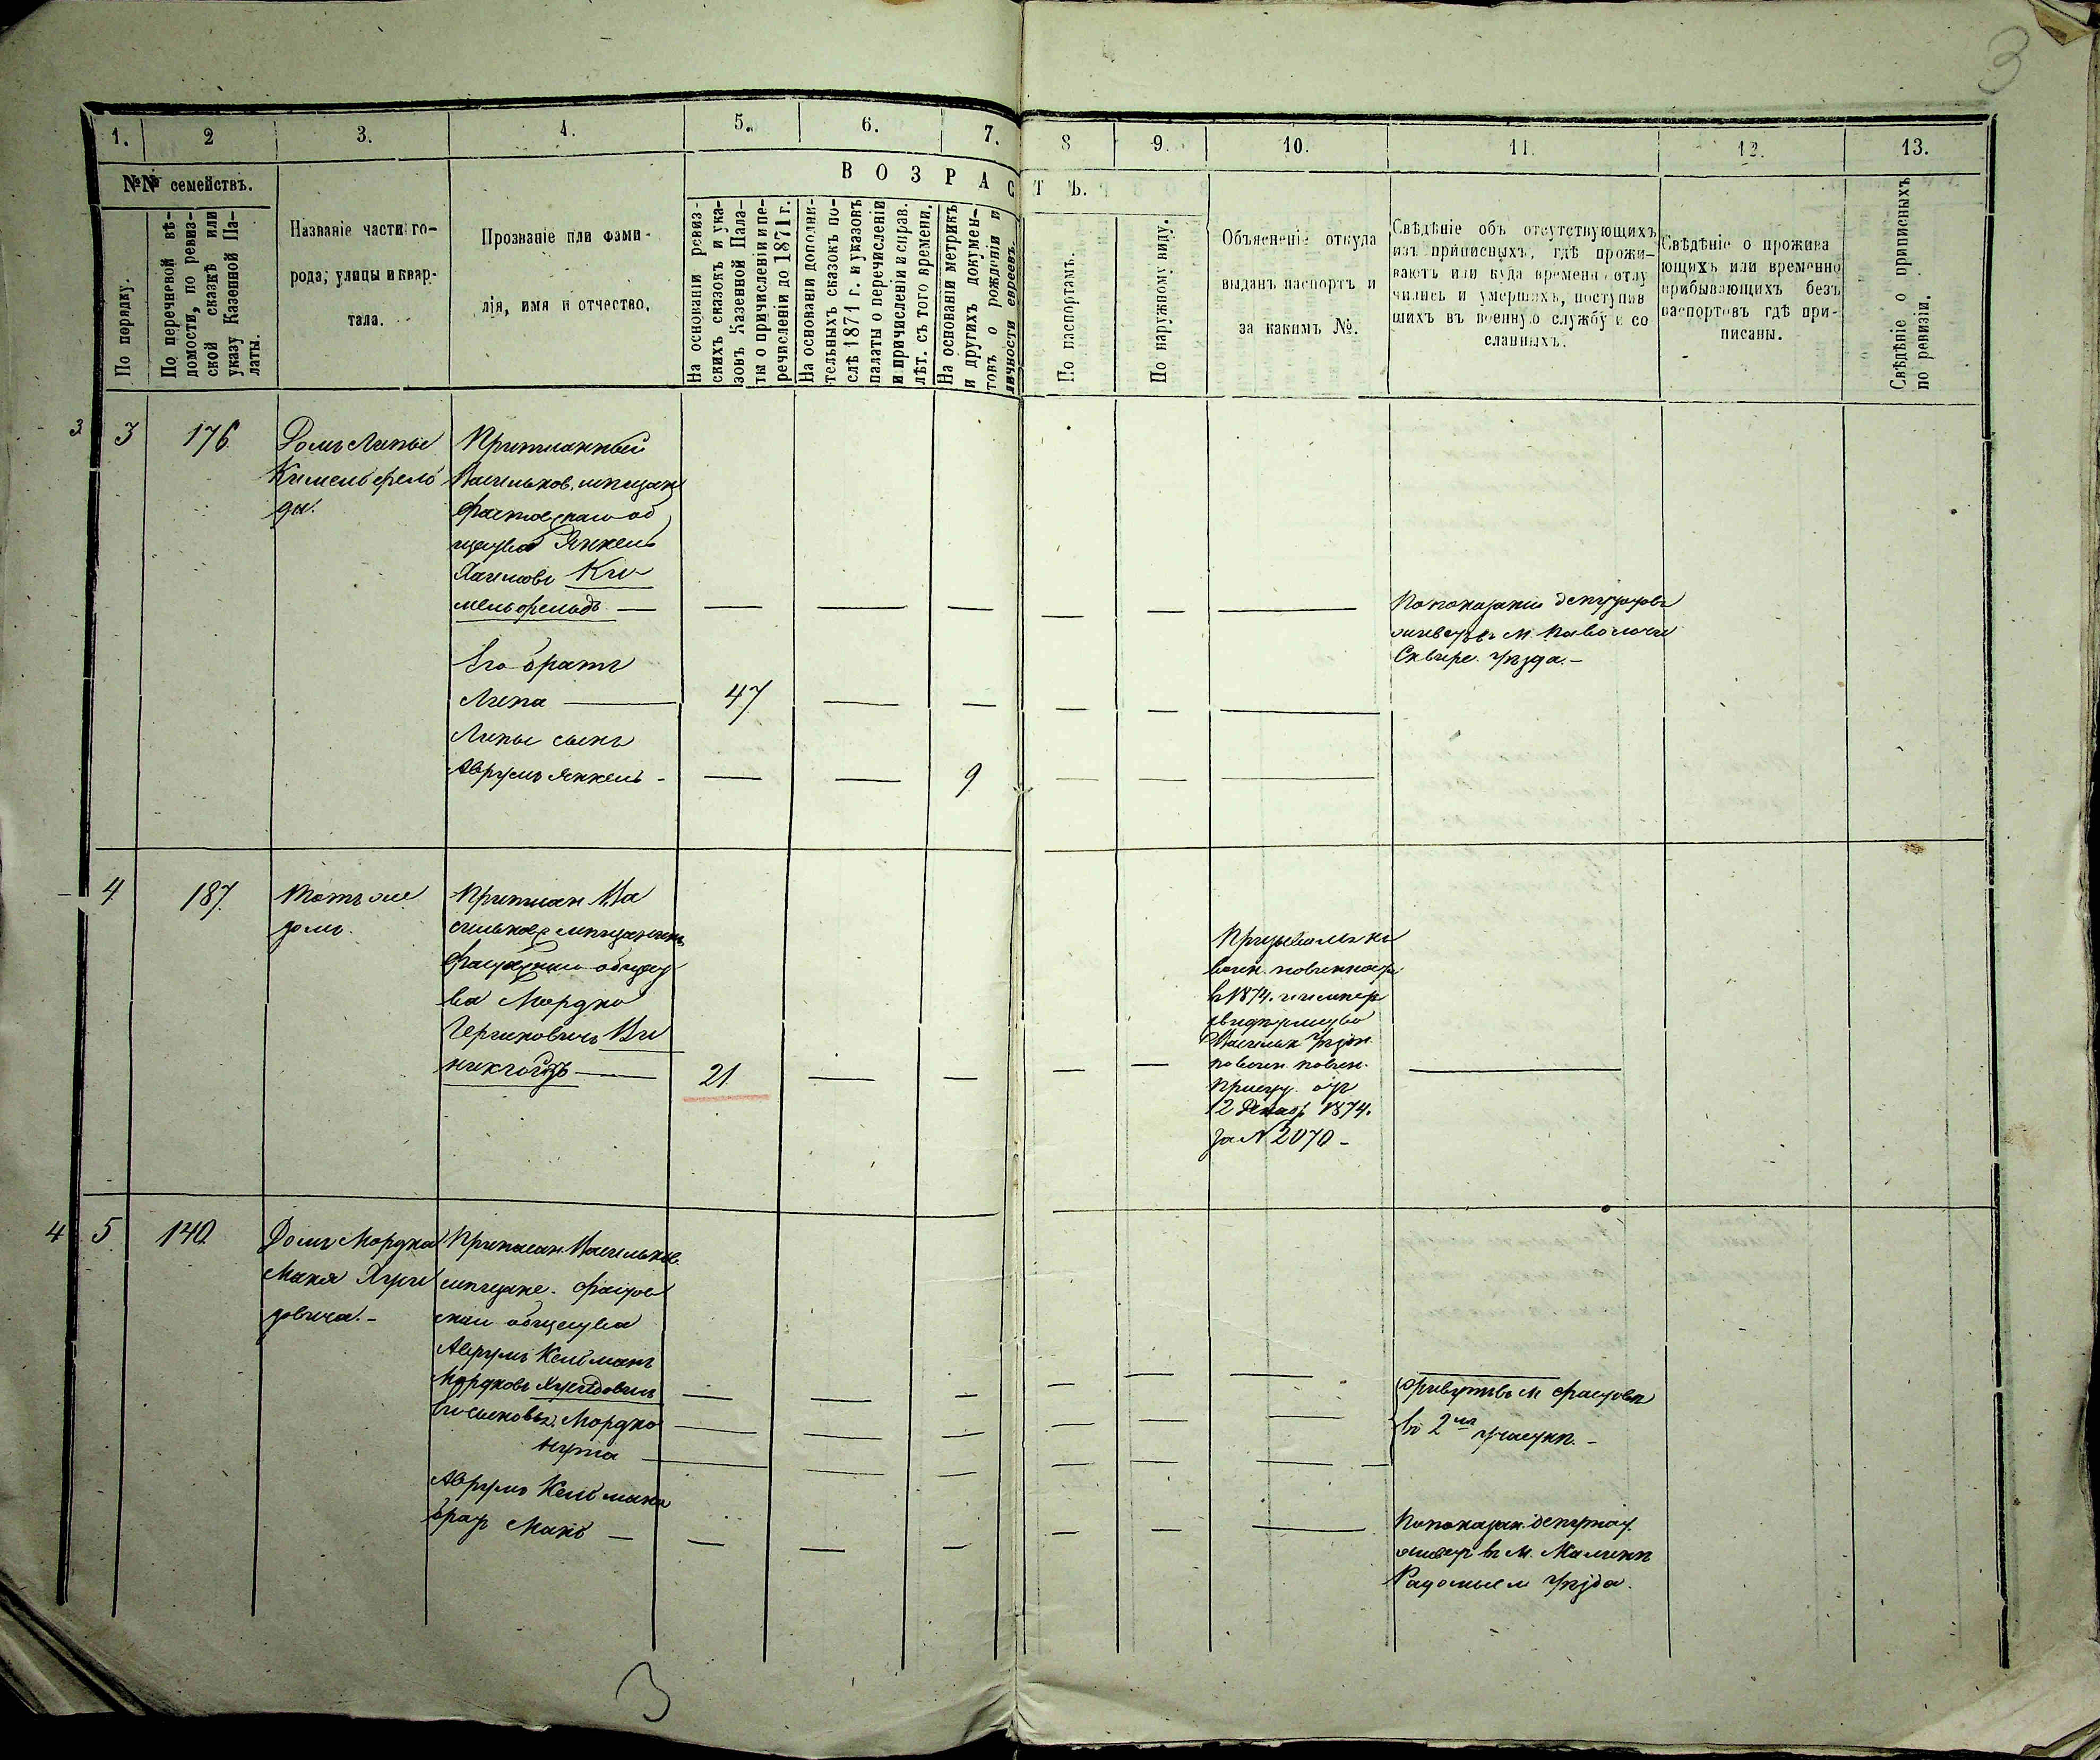 3
1. 2 3. 4. 5. 6. 7. 8 9. 10. 11. 12. 13.
№№ семействъ.
По порядку.
По перечневой вѣ-
домости, по ревиз-
ской сказкѣ или
указу Казенной Па-
латы.
Названіе части го-
рода, улицы и квар-
тала.
Прозваніе или фами-
лія, имя и отчество.
ВОЗРАСТЪ.
На основаніи ревиз-
скихъ сказокъ и ука-
зовъ Казенной Пала-
ты о причисленіи и пе-
речисленіи до 1871 г.
На основаніи дополни-
тельныхъ сказокъ по-
слѣ 1871 г. и указовъ
палаты о перечисленіи
и причисленіи и справ.
лѣт. съ того времени.
На основаніи метрикъ
и другихъ докумен-
товъ о рожденіи и
личности евреевъ.
По паспортамъ.
По наружному виду.
Объясненіе откуда
выданъ паспортъ и
за какимъ №.
Свѣдѣніе объ отсутствующихъ
изъ приписныхъ, гдѣ прожи-
ваютъ или куда времени отлу
чились и умершихъ, поступив
шихъ въ военную службу и со
сланныхъ.
Свѣдѣніе о прожива
ющихъ или временно
прибывающихъ безъ
паспортовъ гдѣ при-
писаны.
Свѣдѣніе о приписныхъ
по ревизіи.
3 3 176
Домъ Липы
Кимельфель
да.
Васильков. мѣщан
Янкель
Хаимовъ Ки-
мельфельдъ —
По показанію депутатовъ
живетъ въ м. Паволочи
Сквирс. уѣзда. —
Его братъ
Липа — 47
Липы сынъ
Аврумъ Янкель - 9
4 187
Тотъ же
домъ.
Приписан Ва
сильков мѣщанинъ
общест
ва Мордко
Гершковичъ Ви
никгойзъ — 21
воин. повинност
в 1874. и имеет
свидѣтельство
Васильк Уѣзд.
по воин. повин.
присут. отъ
12 Декаб. 1874.
за № 2070 -
4 5 140
Домъ Мордка
Маня
довича. -
Приписан Васильков.
мѣщане. Фастов
скаго общества
Аврумъ Кельманъ
Мордковъ
Его сыновья: Мордко
Нута
Аврумъ Кельмана
брат Мань —
живутъ въ м Фастовѣ
въ 2мъ участкѣ. -
По показан. депутат.
живет въ м. Малинѣ
Радомысл уѣзда.
3